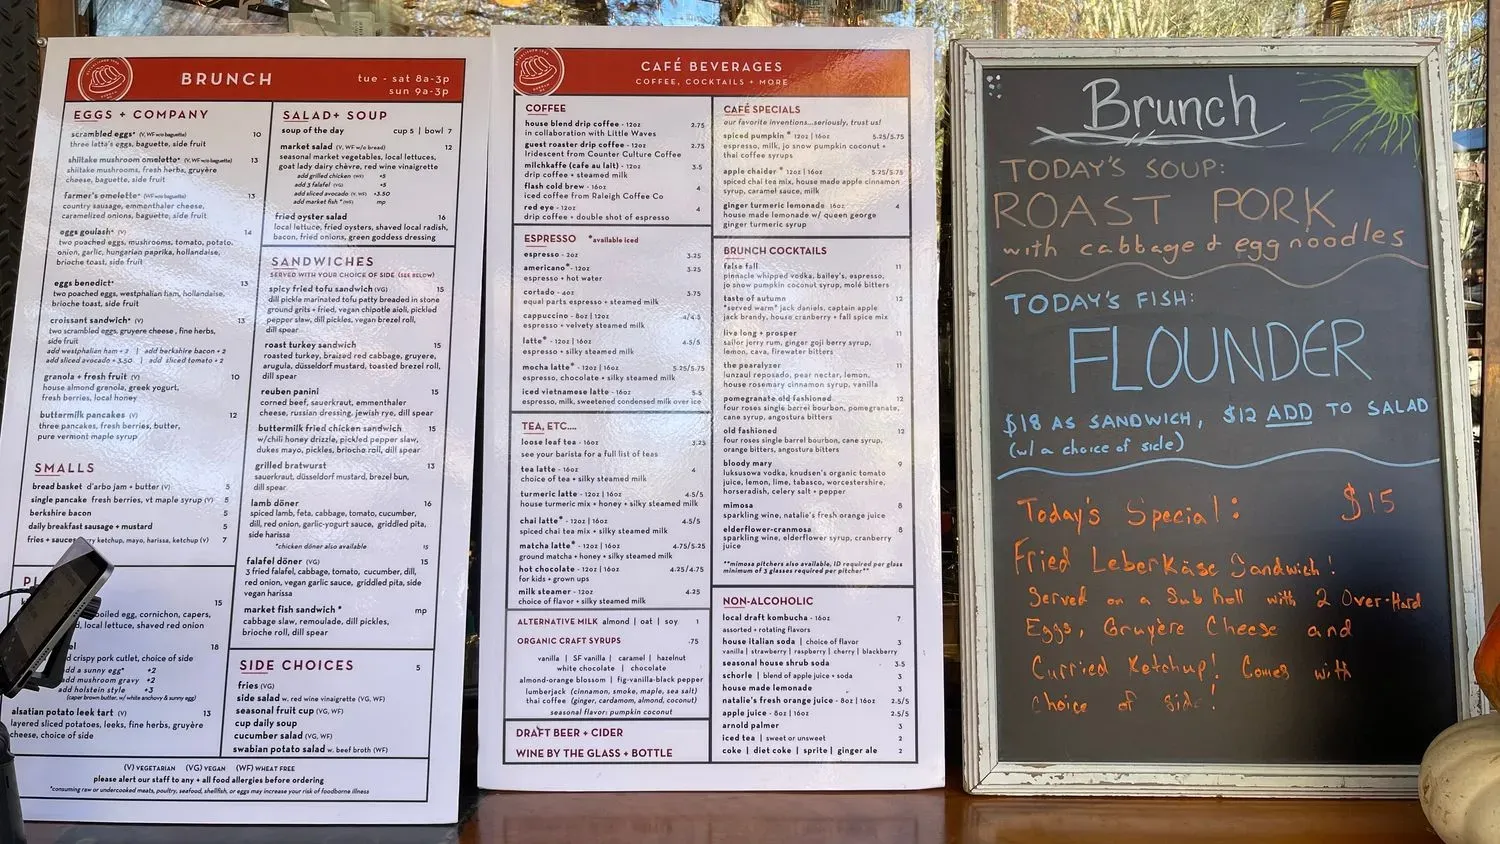 BRUNCH
tue - sat 8a-3p
sun 9a-3p
EGGS + COMPANY
scrambled eggs* (V, WF w/o baguette) 10
three latta's eggs, baguette, side fruit
shiitake mushroom omelette* (V, WF w/o baguette) 13
shiitake mushrooms, fresh herbs, gruyère
cheese, baguette, side fruit
farmer's omelette* (WF w/o baguette) 13
country sausage, emmenthaler cheese,
caramelized onions, baguette, side fruit
eggs goulash* (V) 14
two poached eggs, mushrooms, tomato, potato,
onion, garlic, hungarian paprika, hollandaise,
brioche toast, side fruit
eggs benedict* 13
two poached eggs, westphalian ham, hollandaise,
brioche toast, side fruit
croissant sandwich* (V) 13
two scrambled eggs, gruyere cheese, fine herbs,
side fruit
add westphalian ham + 2 | add berkshire bacon + 2
add sliced avocado + 3.50 | add sliced tomato + 2
granola + fresh fruit (V) 10
house almond granola, greek yogurt,
fresh berries, local honey
buttermilk pancakes (V) 12
three pancakes, fresh berries, butter,
pure vermont maple syrup
SMALLS
bread basket d'arbo jam + butter (V) 5
single pancake fresh berries, vt maple syrup (V) 5
berkshire bacon 5
daily breakfast sausage + mustard 5
fries + sauces curry ketchup, mayo, harissa, ketchup (V) 7
15
boiled egg, cornichon, capers,
local lettuce, shaved red onion
18
crispy pork cutlet, choice of side
add a sunny egg* +2
add mushroom gravy +2
add holstein style +3
(caper brown butter, w/ white anchovy & sunny egg)
alsatian potato leek tart (V) 13
layered sliced potatoes, leeks, fine herbs, gruyère
cheese, choice of side
SALAD+ SOUP
soup of the day cup 5 | bowl 7
market salad (V, WF w/o bread) 12
seasonal market vegetables, local lettuces,
goat lady dairy chèvre, red wine vinaigrette
add grilled chicken (WF) +5
add 3 falafel (VG) +5
add sliced avocado (V, WF) +3.50
add market fish* (WF) mp
fried oyster salad 16
local lettuce, fried oysters, shaved local radish,
bacon, fried onions, green goddess dressing
SANDWICHES
SERVED WITH YOUR CHOICE OF SIDE (SEE BELOW)
spicy fried tofu sandwich (VG) 15
dill pickle marinated tofu patty breaded in stone
ground grits + fried, vegan chipotle aioli, pickled
pepper slaw, dill pickles, vegan brezel roll,
dill spear
roast turkey sandwich 15
roasted turkey, braised red cabbage, gruyere,
arugula, düsseldorf mustard, toasted brezel roll,
dill spear
reuben panini 15
corned beef, sauerkraut, emmenthaler
cheese, russian dressing, jewish rye, dill spear
buttermilk fried chicken sandwich 15
w/chili honey drizzle, pickled pepper slaw,
dukes mayo, pickles, brioche roll, dill spear
grilled bratwurst 13
sauerkraut, düsseldorf mustard, brezel bun,
dill spear
lamb döner 16
spiced lamb, feta, cabbage, tomato, cucumber,
dill, red onion, garlic-yogurt sauce, griddled pita,
side harissa
*chicken döner also available 15
falafel döner (VG) 15
3 fried falafel, cabbage, tomato, cucumber, dill,
red onion, vegan garlic sauce, griddled pita, side
vegan harissa
market fish sandwich * mp
cabbage slaw, remoulade, dill pickles,
brioche roll, dill spear
SIDE CHOICES 5
fries (VG)
side salad w. red wine vinaigrette (VG, WF)
seasonal fruit cup (VG, WF)
cup daily soup
cucumber salad (VG, WF)
swabian potato salad w. beef broth (WF)
(V) VEGETARIAN (VG) VEGAN (WF) WHEAT FREE
please alert our staff to any + all food allergies before ordering
*consuming raw or undercooked meats, poultry, seafood, shellfish, or eggs may increase your risk of foodborne illness
CAFÉ BEVERAGES
COFFEE, COCKTAILS + MORE
COFFEE
house blend drip coffee - 12oz 2.75
in collaboration with Little Waves
guest roaster drip coffee - 12oz 2.75
Iridescent from Counter Culture Coffee
milchkaffe (cafe au lait) - 12oz 3.5
drip coffee + steamed milk
flash cold brew - 16oz 4
iced coffee from Raleigh Coffee Co
red eye - 12oz 4
drip coffee + double shot of espresso
ESPRESSO *available iced
espresso - 2oz 3.25
americano* - 12oz 3.25
espresso + hot water
cortado - 4oz 3.75
equal parts espresso + steamed milk
cappuccino - 8oz | 12oz 4/4.5
espresso + velvety steamed milk
latte* - 12oz | 16oz 4.5/5
espresso + silky steamed milk
mocha latte* - 12oz | 16oz 5.25/5.75
espresso, chocolate + silky steamed milk
iced vietnamese latte - 16oz 5.5
espresso, milk, sweetened condensed milk over ice
TEA, ETC....
loose leaf tea - 16oz 3.25
see your barista for a full list of teas
tea latte - 16oz 4
choice of tea + silky steamed milk
turmeric latte - 12oz | 16oz 4.5/5
house turmeric mix + honey + silky steamed milk
chai latte* - 12oz | 16oz 4.5/5
spiced chai tea mix + silky steamed milk
matcha latte* - 12oz | 16oz 4.75/5.25
ground matcha + honey + silky steamed milk
hot chocolate - 12oz | 16oz 4.25/4.75
for kids + grown ups
milk steamer - 12oz 4.25
choice of flavor + silky steamed milk
ALTERNATIVE MILK almond | oat | soy 1
ORGANIC CRAFT SYRUPS .75
vanilla | SF vanilla | caramel | hazelnut
white chocolate | chocolate
almond-orange blossom | fig-vanilla-black pepper
lumberjack (cinnamon, smoke, maple, sea salt)
that coffee (ginger, cardamom, almond, coconut)
seasonal flavor: pumpkin coconut
DRAFT BEER + CIDER
WINE BY THE GLASS + BOTTLE
CAFÉ SPECIALS
our favorite inventions...seriously, trust us!
spiced pumpkin * 12oz | 16oz 5.25/5.75
espresso, milk, jo snow pumpkin coconut +
thai coffee syrups
apple chaider * 12oz | 16oz 5.75/5.75
spiced chai tea mix, house made apple cinnamon
syrup, caramel sauce, milk
ginger turmeric lemonade 16oz 4
house made lemonade w/ queen george
ginger turmeric syrup
BRUNCH COCKTAILS
false fall 11
pinnacle whipped vodka, bailey's, espresso,
jo snow pumpkin coconut syrup, molé bitters
taste of autumn 12
*served warm* jack daniels, captain apple
jack brandy, house cranberry + fall spice mix
live long + prosper 11
sailor jerry rum, ginger goji berry syrup,
lemon, cava, firewater bitters
the pearalyzer 11
lunzaul reposado, pear nectar, lemon,
house rosemary cinnamon syrup, vanilla
pomegranate old fashioned 12
four roses single barrel bourbon, pomegranate,
cane syrup, angostura bitters
old fashioned 12
four roses single barrel bourbon, cane syrup,
orange bitters, angostura bitters
bloody mary 9
luksusowa vodka, knudsen's organic tomato
juice, lemon, lime, tabasco, worcestershire,
horseradish, celery salt + pepper
mimosa 8
sparkling wine, natalie's fresh orange juice
elderflower-cranmosa 8
sparkling wine, elderflower syrup, cranberry
juice
**mimosa pitchers also available, ID required per glass
minimum of 3 glasses required per pitcher**
NON-ALCOHOLIC
local draft kombucha - 16oz 7
assorted + rotating flavors
house italian soda | choice of flavor 3
vanilla | strawberry | raspberry | cherry | blackberry
seasonal house shrub soda 3.5
schorle | blend of apple juice + soda 3
house made lemonade 3
natalie's fresh orange juice - 8oz | 16oz 2.5/5
apple juice - 8oz | 16oz 2.5/5
arnold palmer 3
iced tea | sweet or unsweet 2
coke | diet coke | sprite | ginger ale 2
Brunch
TODAY'S SOUP:
ROAST PORK
with cabbage & egg noodles
TODAY'S FISH:
FLOUNDER
$18 AS SANDWICH, $12 ADD TO SALAD
(w/ a choice of side)
Today's Special: $15
Fried Leberkäse Sandwich!
Served on a Sub Roll with 2 Over-Hard
Eggs, Gruyère Cheese and
Curried Ketchup! Comes with
choice of side!